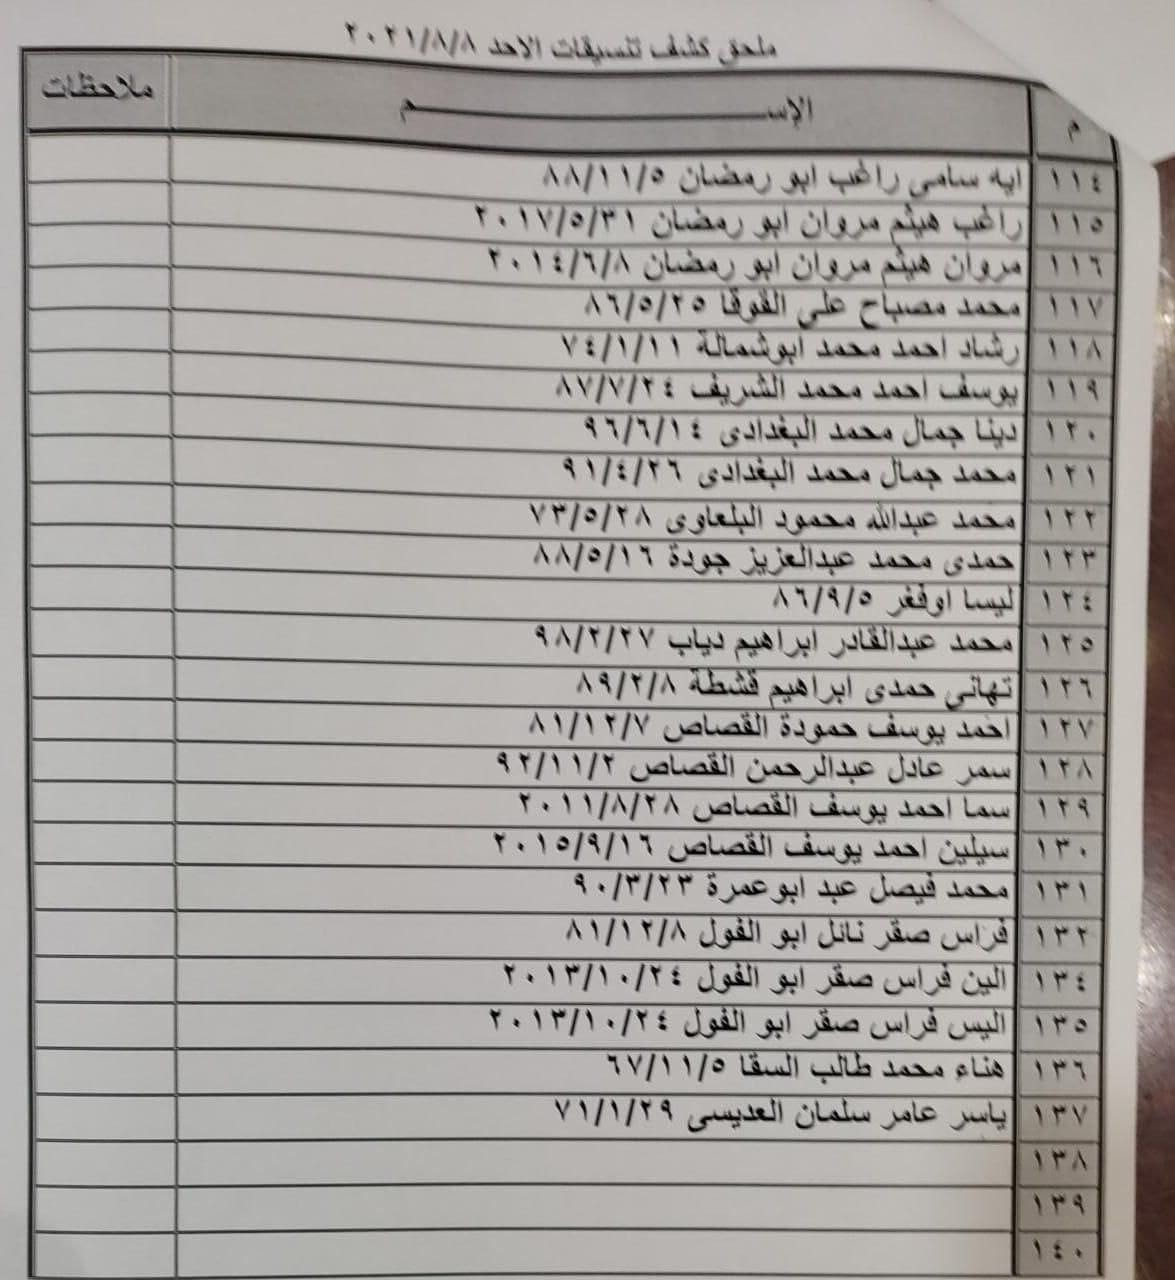 ملحق كشف تنسيقات الاحد ٢٠٢١/٨/٨
م الإســـــــم ملاحظات
١١٤ ايه سامى راغب ابو رمضان ٨٨/١١/٥
١١٥ راغب هيثم مروان ابو رمضان ٢٠١٧/٥/٣١
١١٦ مروان هيثم مروان ابو رمضان ٢٠١٤/٦/٨
١١٧ محمد مصباح على القوقا ٨٦/٥/٢٥
١١٨ رشاد احمد محمد ابوشمالة ٧٤/١/١١
١١٩ يوسف احمد محمد الشريف ٨٧/٧/٢٤
١٢٠ دينا جمال محمد البغدادى ٩٦/٦/١٤
١٢١ محمد جمال محمد البغدادى ٩١/٤/٢٦
١٢٢ محمد عبدالله محمود البلعاوى ٧٣/٥/٢٨
١٢٣ حمدى محمد عبدالعزيز جودة ٨٨/٥/١٦
١٢٤ ليسا اوفغر ٨٦/٩/٥
١٢٥ محمد عبدالقادر ابراهيم دياب ٩٨/٢/٢٧
١٢٦ تهاني حمدى ابراهيم قشطة ٨٩/٢/٨
١٢٧ احمد يوسف حمودة القصاص ٨١/١٢/٧
١٢٨ سمر عادل عبدالرحمن القصاص ٩٢/١١/٢
١٢٩ سما احمد يوسف القصاص ٢٠١١/٨/٢٨
١٣٠ سيلين احمد يوسف القصاص ٢٠١٥/٩/١٦
١٣١ محمد فيصل عبد ابوعمرة ٩٠/٣/٢٣
١٣٢ فراس صقر نائل ابو الفول ٨١/١٢/٨
١٣٤ الين فراس صقر ابو الفول ٢٠١٣/١٠/٢٤
١٣٥ اليس فراس صقر ابو الفول ٢٠١٣/١٠/٢٤
١٣٦ هناء محمد طالب السقا ٦٧/١١/٥
١٣٧ ياسر عامر سلمان العديسى ٧١/١/٢٩
١٣٨
١٣٩
١٤٠